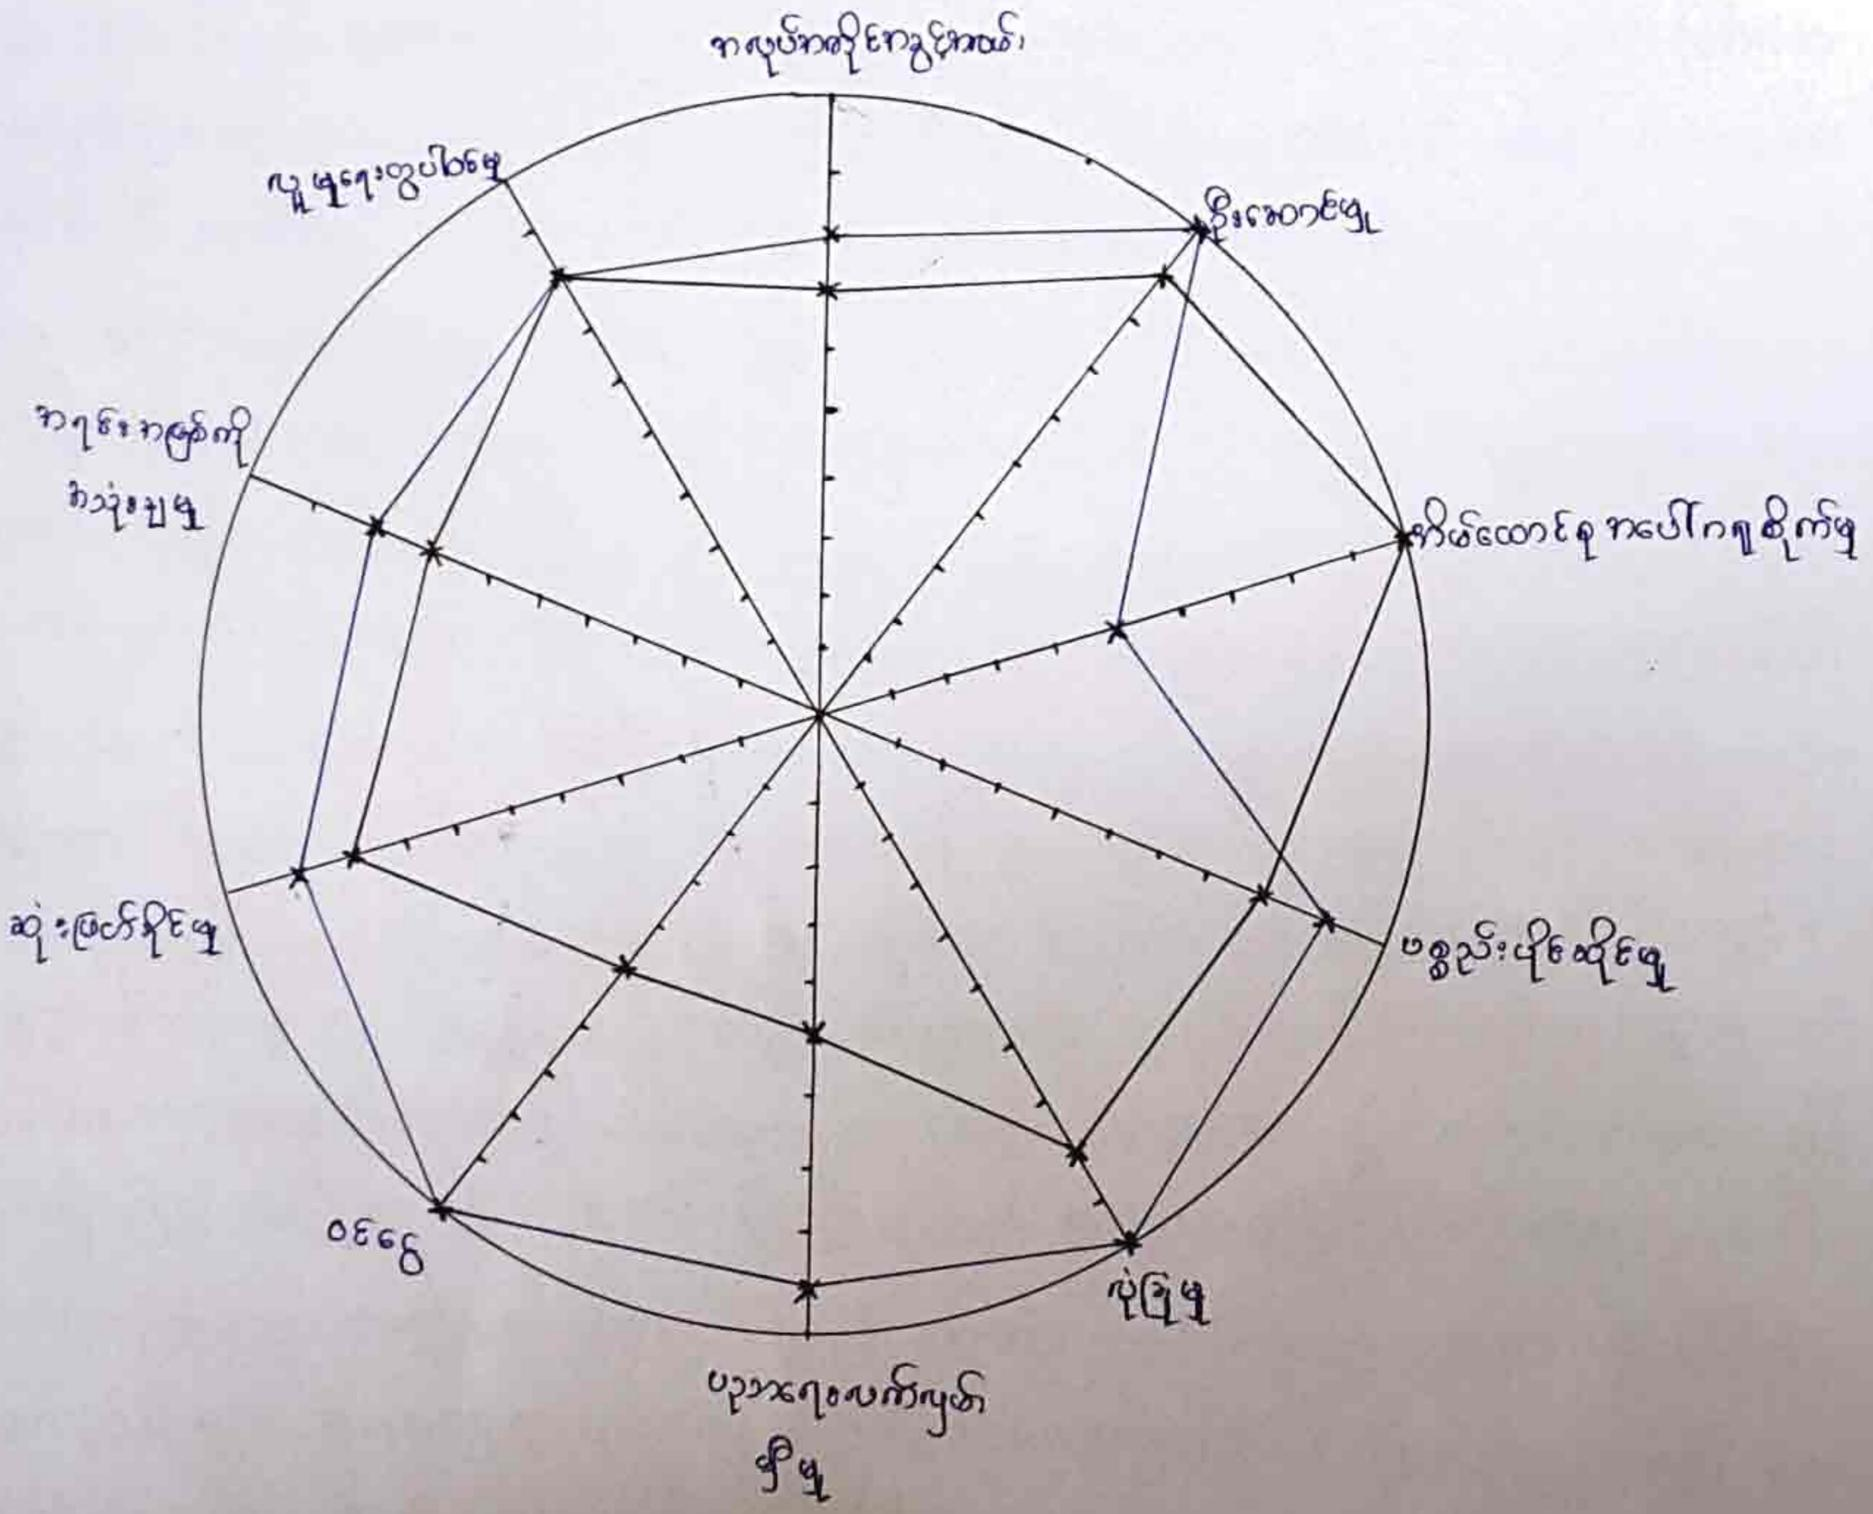 အလုပ်အကိုင်အခွင့်အလမ်း
ဦးဆောင်မှု
အိမ်ထောင်စု အပေါ်ဂရုစိုက်မှု
ပစ္စည်းပိုင်ဆိုင်မှု
လုံခြုံမှု
ပညာရေးလက်လှမ်း
မှီမှု
ဝင်ငွေ
ဆုံးဖြတ်နိုင်မှု
အရင်းအမြစ်ကို
အသုံးချမှု
လူမှုရေးတွင်ပါဝင်မှု